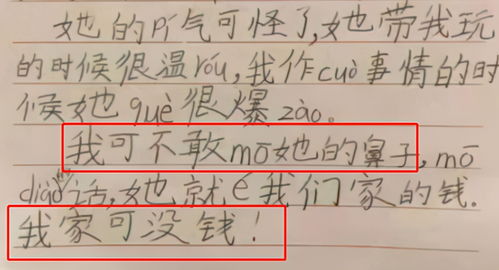 她的pí气可怪了,她带我玩
的时候很温róu,我作cuò事情的时
候她què很爆zào。
我可不敢mō她的鼻子,mō
diào话,她就é我们家的钱.
我家可没钱!